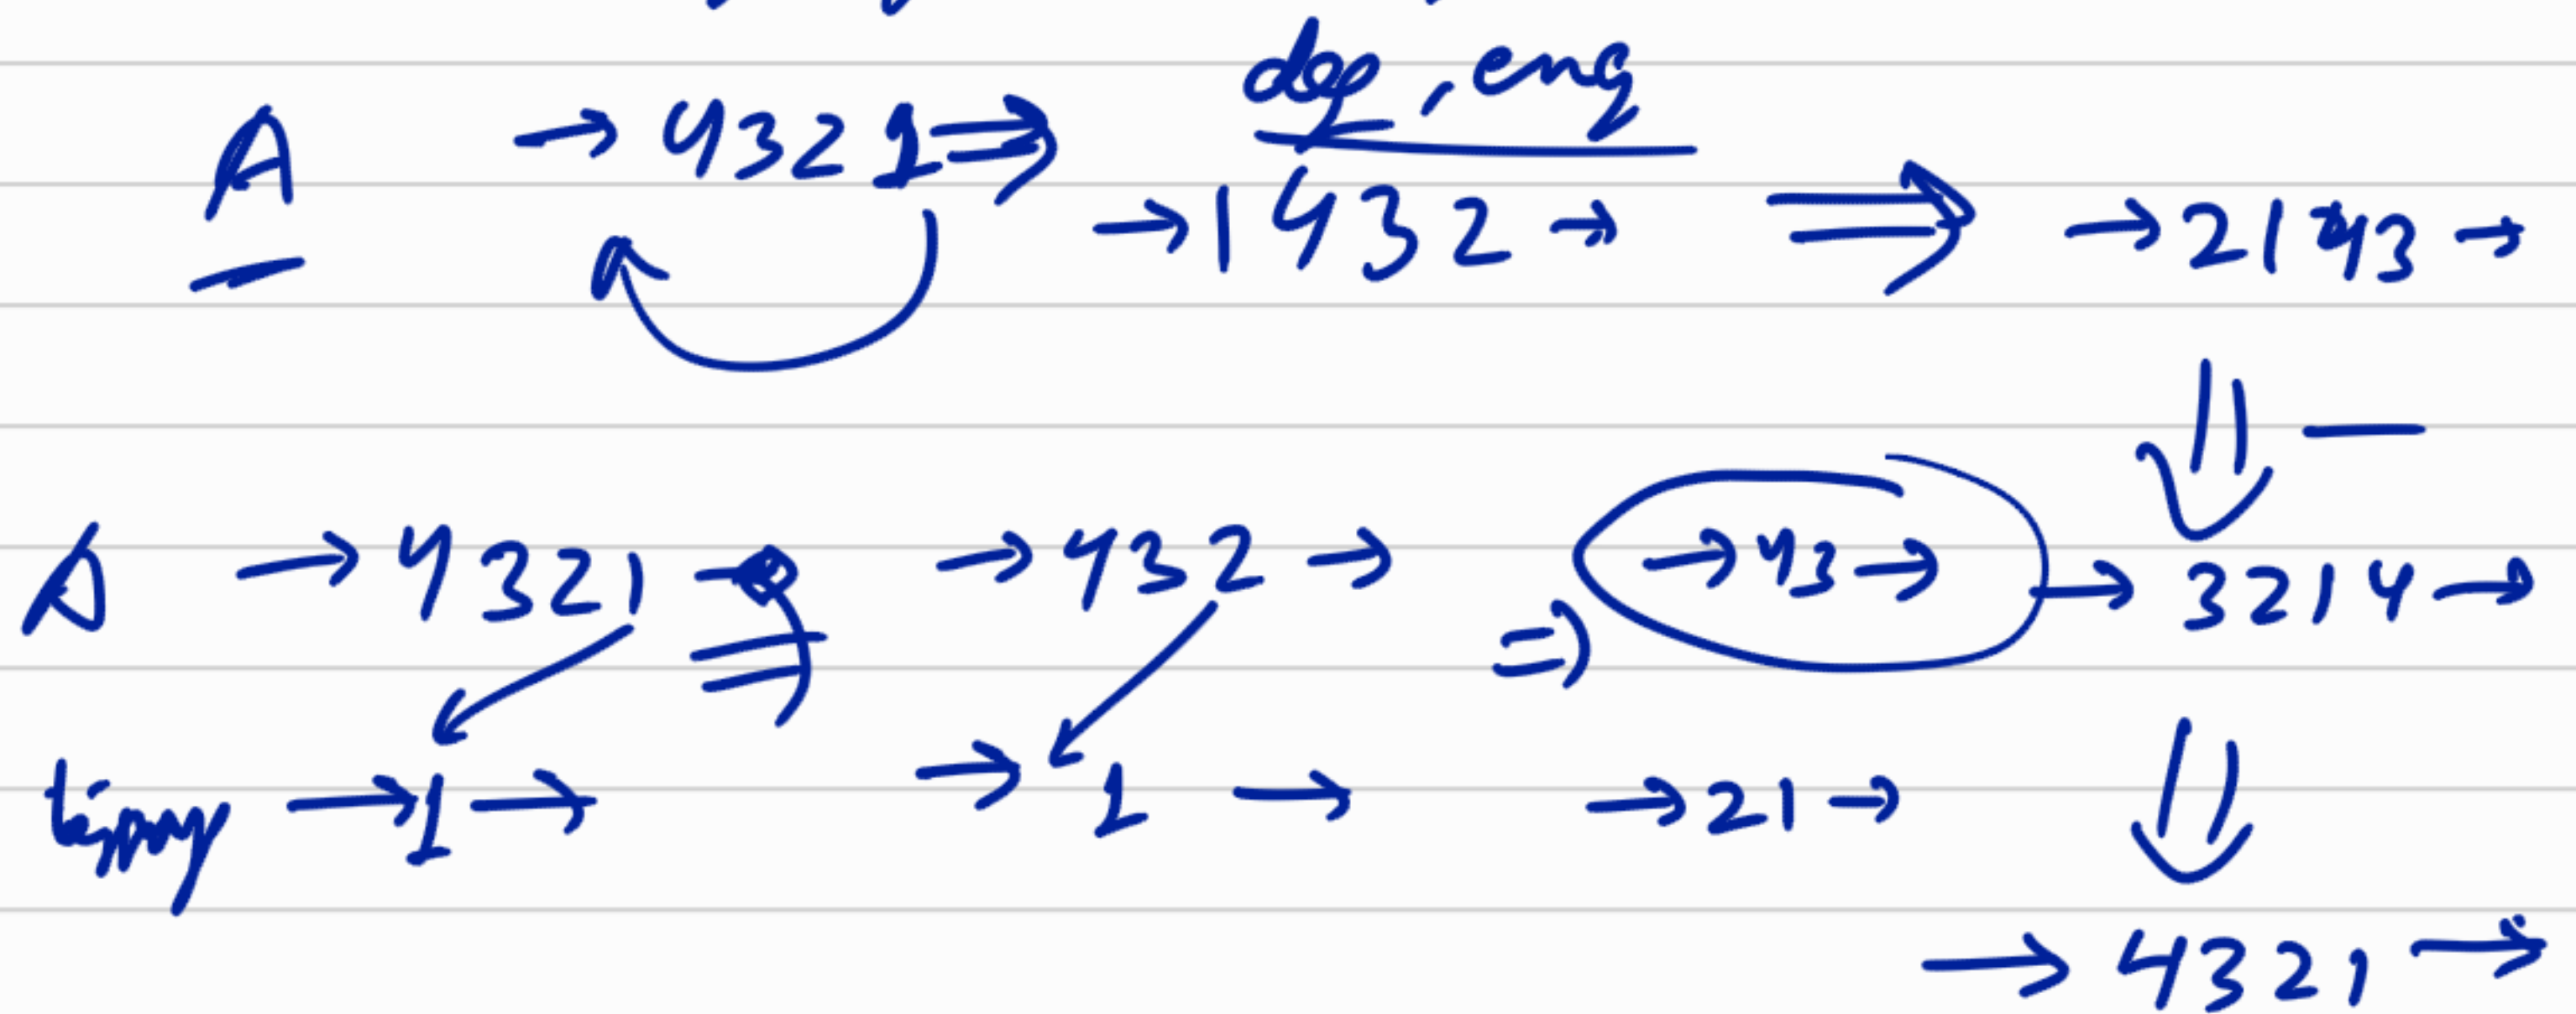 deq, enq
A → 4321 ⇒ → 1432 → ⇒ → 2143 →
A → 4321 ⇒ → 432 → ⇒ → 43 → → 3214 →
→ 1 → → 1 → → 21 →
→ 4321 →